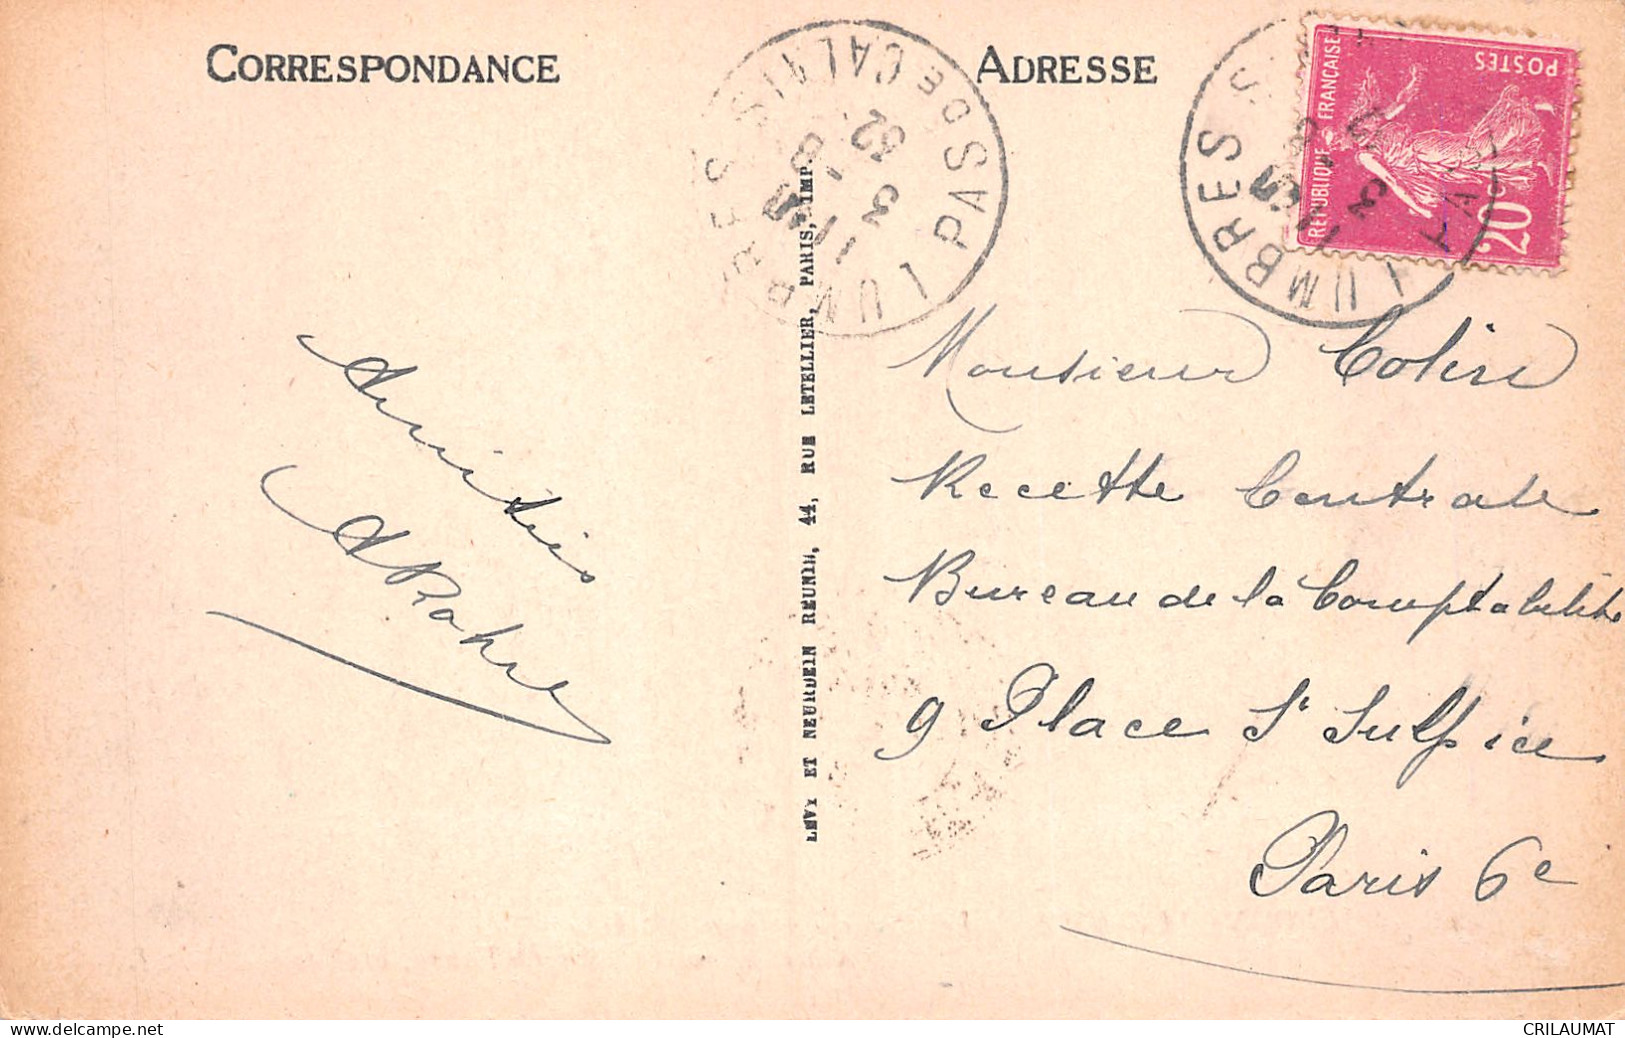 CORRESPONDANCE
ADRESSE
LUMBRES
PAS DE CALAIS
3
8
32
RÉPUBLIQUE FRANÇAISE
POSTES
20c
LUMBRES
Amitiés
LEVY ET NEURDEIN REUNIS, 44, RUE LETELLIER, PARIS, IMP.
Monsieur Colin
Recette Centrale
Bureau de la Comptabilité
9 Place St Sulpice
Paris 6e
CRILAUMAT